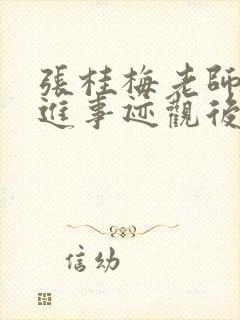 張桂梅老師
進事迹觀後
信幼